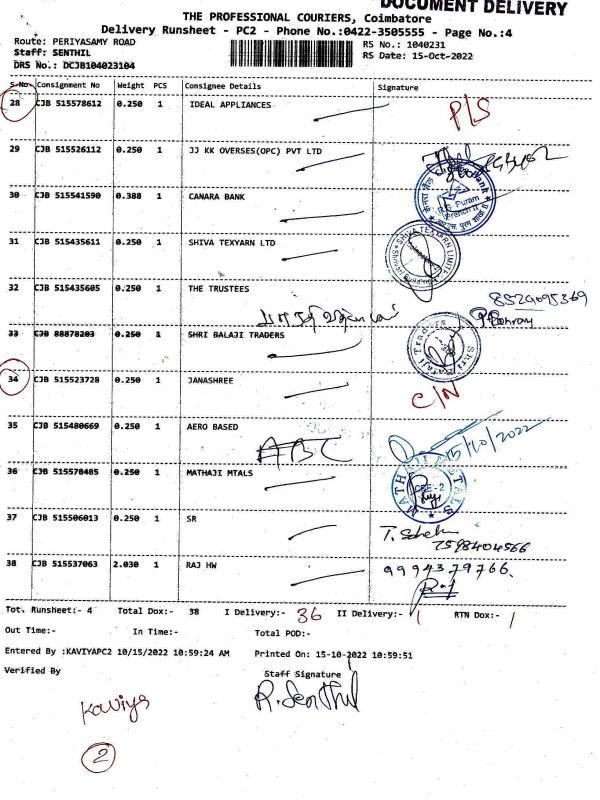 DOCUMENT DELIVERY
THE PROFESSIONAL COURIERS, Coimbatore
Delivery Runsheet - PC2 - Phone No.:0422-3505555 - Page No.:4
Route: PERIYASAMY ROAD
RS No.: 1040231
Staff: SENTHIL
RS Date: 15-Oct-2022
DRS No.: DCJB104023104
S-No Consignment No Weight PCS Consignee Details Signature
28 CJB 515578612 0.250 1 IDEAL APPLIANCES P/S
29 CJB 515526112 0.250 1 JJ KK OVERSES(OPC) PVT LTD
30 CJB 515541590 0.388 1 CANARA BANK
31 CJB 515435611 0.250 1 SHIVA TEXYARN LTD SHIVA TEXYARN LIMITED
32 CJB 515435605 0.250 1 THE TRUSTEES 8529095369
33 CJB 88878203 0.250 1 SHRI BALAJI TRADERS Shri Balaji Traders
34 CJB 515523728 0.250 1 JANASHREE C/N
35 CJB 515480669 0.250 1 AERO BASED ABC 15/10/2022
36 CJB 515578485 0.250 1 MATHAJI MTALS MATHAJI METALS
37 CJB 515506013 0.250 1 SR
7598404566
38 CJB 515537063 2.030 1 RAJ HW 9994379766.
Raj
Tot. Runsheet:- 4 Total Dox:- 38 I Delivery:- 36 II Delivery:- 1 RTN Dox:- 1
Out Time:- In Time:- Total POD:-
Entered By :KAVIYAPC2 10/15/2022 10:59:24 AM Printed On: 15-10-2022 10:59:51
Verified By Staff Signature
Kaviya R. Senthil
2